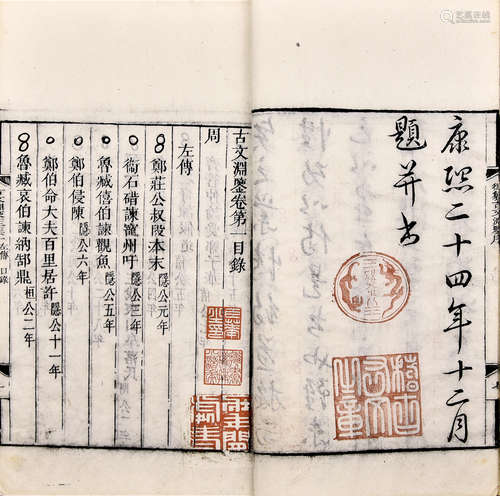 康熙二十四年十二月
題并書
稽古
右文
之章
古文淵鑒卷第一目錄
周
左傳
鄭莊公叔段本末 隱公元年
衞石碏諫寵州吁 隱公三年
魯臧僖伯諫觀魚 隱公五年
鄭伯侵陳 隱公六年
鄭伯命大夫百里居許 隱公十一年
魯臧哀伯諫納郜鼎 桓公二年
左傳 目錄